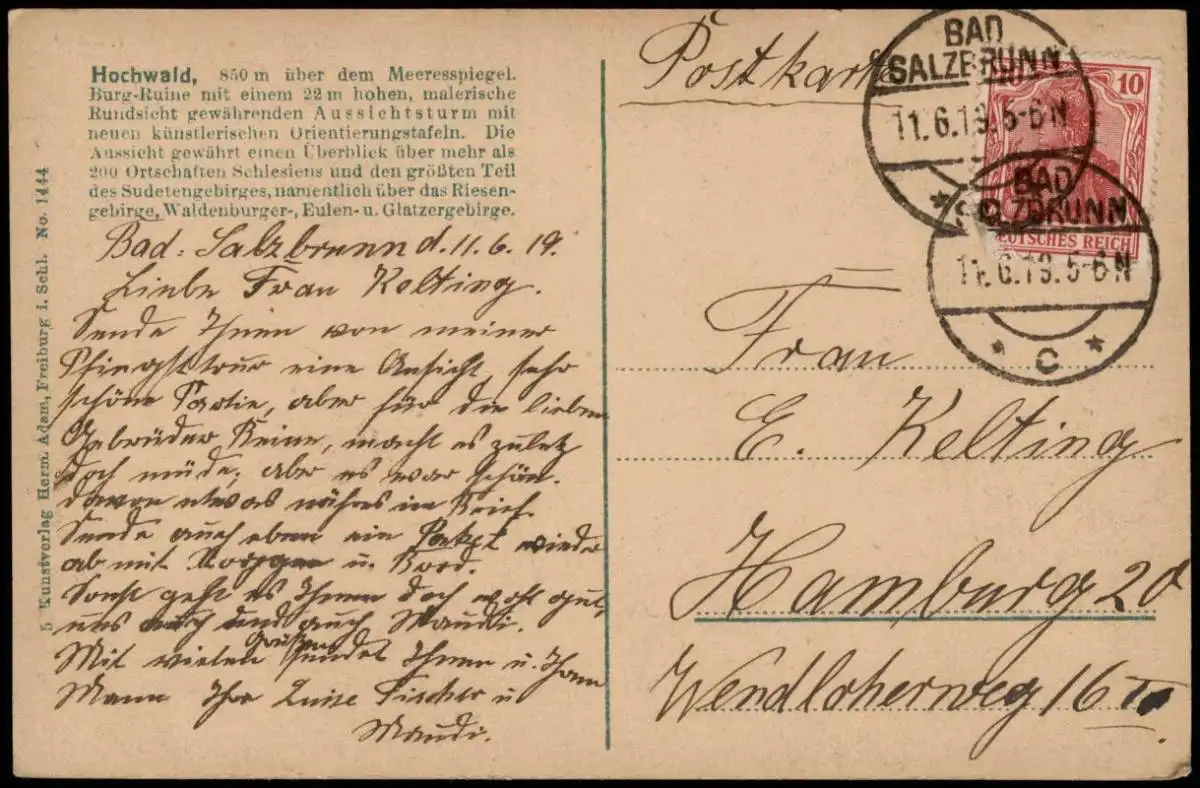 Hochwald, 850 m über dem Meeresspiegel.
Burg-Ruine mit einem 22 m hohen, malerische
Rundsicht gewährenden Aussichtsturm mit
neuen künstlerischen Orientierungstafeln. Die
Aussicht gewährt einen Überblick über mehr als
200 Ortschaften Schlesiens und den größten Teil
des Sudetengebirges, namentlich über das Riesen-
gebirge, Waldenburger-, Eulen- u. Glatzergebirge.
Bad-Salzbrunn d. 11.6.19.
Liebe Frau Kelting.
Sende Ihnen von meiner
Pfingsttour eine Ansicht, sehr
schöne Partie, aber für die lieben
Gebrüder Beine, macht es zuletz
doch müde; aber es war schön.
davon etwas nähres im Brief.
Sende auch eben ein Paket wieder
ab mit u.
Sonst geht es Ihnen doch wohl gut,
uns auch und auch Maudi.
Mit vielen Grüßen sendet Ihnen u. Ihrem
Mann Ihre Luise Fischer u
Maudi.
5 Kunstverlag Herm. Adam, Freiburg i. Schl. No. 1444
Postkarte
BAD
SALZBRUNN
11.6.19.5-6N
* c
10
DEUTSCHES REICH
BAD
SALZBRUNN
11.6.19.5-6N
* c *
Frau
E. Kelting
Hamburg 20
Wendloherweg 16